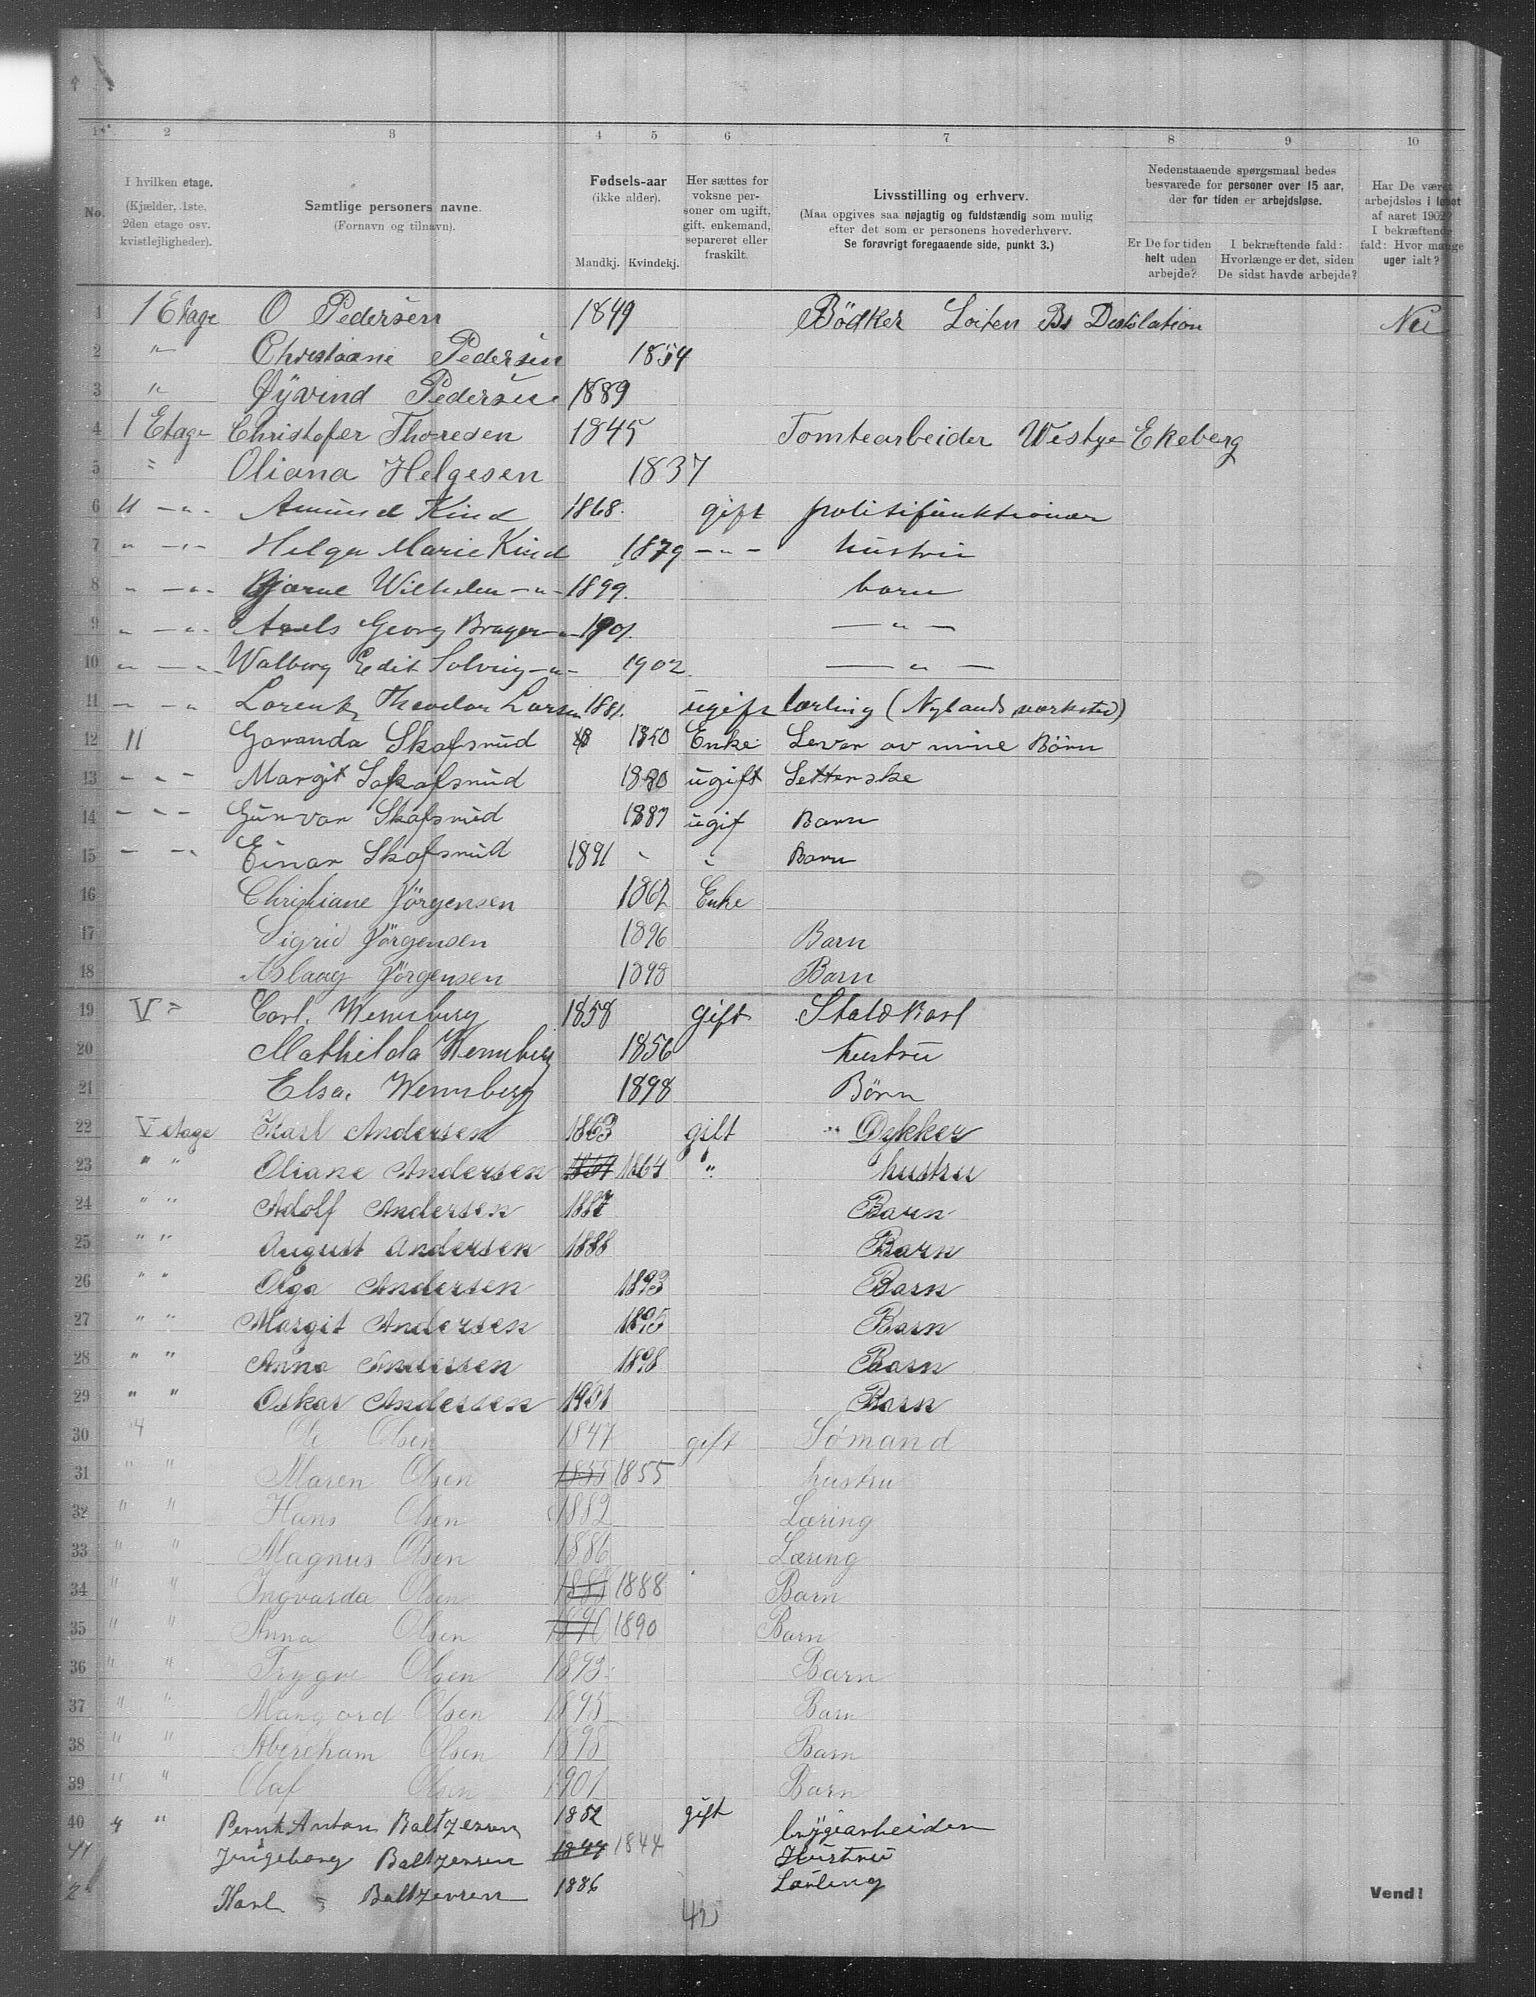 1 2 3 4 5 6 7 8 9 10
No.
I hvilken etage.
(Kjælder, 1ste,
2den etage osv.
kvistlejligheder).
Samtlige personers navne.
(Fornavn og tilnavn).
Fødsels-aar
(ikke alder).
Mandkj. Kvindekj.
Her sættes for
voksne per-
soner om ugift,
gift, enkemand,
separeret eller
fraskilt.
Livsstilling og erhverv.
(Maa opgives saa nøjagtig og fuldstændig som mulig
efter det som er personens hovederhverv.
Se forøvrigt foregaaende side, punkt 3.)
Nedenstaaende spørgsmaal bedes
besvarede for personer over 15 aar,
der for tiden er arbejdsløse.
Er De for tiden
helt uden
arbejde?
I bekræftende fald:
Hvorlænge er det, siden
De sidst havde arbejde?
Har De været
arbejdsløs i løbet
af aaret 1902?
I bekræftende
fald: Hvor mange
uger ialt?
1 1 Etage O Pedersen 1849 Bödker Loiten Bs Destilation Nei
2 " Christiane Pedersen 1854
3 " Øyvind Pedersen 1889
4 1 Etage Christofer Thoresen 1845 Tomtearbeider Westye Ekeberg
5 " Oliana Helgesen 1837
6 II - " - Amund Kind 1868 gift politifunktionær
7 " - " - Helga Marie Kind 1879 - " - hustru
8 " - " - Bjarne Wilhelm - " - 1899 barn
9 " - " - Georg - " - 1901 - " -
10 " - " - Walborg Edit Solveig - " - 1902 - " -
11 " - " Lorentz Theodor Larsen 1881 ugift lærling (Nylands værksted)
12 II Skafsrud 1850 Enke Lever av mine Börn
13 - " - Margit Skafsrud 1880 ugift Setterske
14 - " - Gunvor Skafsrud 1887 ugif Barn
15 - " - Einar Skafsrud 1891 " " Barn
16 Christiane Jörgensen 1862 Enke
17 Sigrid Jörgensen 1896 Barn
18 Aslaug Jörgensen 1898 Barn
19 V " Carl Wennberg 1858 gift Staldkarl
20 Mathilda Wennberg 1856 hustru
21 Elsa Wennberg 1898 Børn
22 V etage Karl Andersen 1863 gift " Dykker
23 " " Oliane Andersen 1864 " hustru
24 " " Adolf Andersen 1887 Barn
25 " " August Andersen 1888 Barn
26 " " Olga Andersen 1893 Barn
27 " " Margit Andersen 1895 Barn
28 " " Anna Andersen 1898 Barn
29 " " Oskar Andersen 1901 Barn
30 4 Ole Olsen 1847 gift Sømand
31 " " Maren Olsen 1855 1855 hustru
32 " " Hans Olsen 1882 Læring
33 " " Magnus Olsen 1886 Læring
34 " " Ingvarda Olsen 1888 1888 Barn
35 " " Anna Olsen 1890 1890 Barn
36 " " Trygve Olsen 1893 Barn
37 " " Olsen 1895 Barn
38 " " Abereham Olsen 1898 Barn
39 " " Olaf Olsen 1901 Barn
40 4 " Bernt Anton Baltzersen 1852 gift brygiarbeider
41 Ingeborg Baltzersen 1844 1844 Hustru
2 Karl " Baltzersen 1886 Lærling
42
Vend!